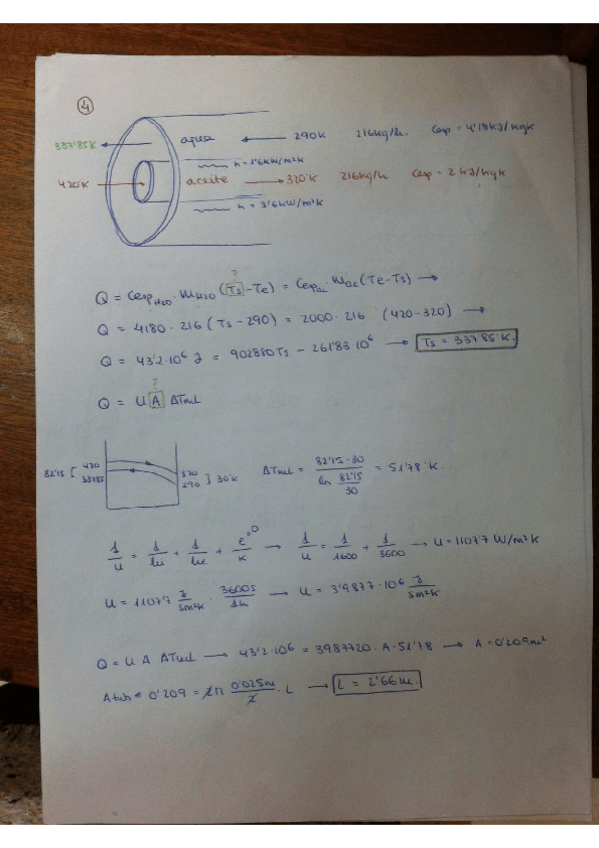 4
337'85K ← agua ← 290K 216kg/h. Cesp = 4'18KJ/kgK
h = 1'6kW/m²K
420K → aceite → 320K 216kg/h Cesp = 2 kJ/kgK
h = 3'6kW/m²K
?
Q = Cesp H2O · mH2O (Ts - Te) = Cesp ac · mac (Te - Ts) →
Q = 4180 · 216 (Ts - 290) = 2000 · 216 (420 - 320) →
Q = 43'2·10⁶ J = 902880 Ts - 261'83 10⁶ → Ts = 337'85 K.
?
Q = U A ΔTml
82'15 [ 420 337'85 320 290 ] 30K ΔTml = (82'15 - 30) / (ln 82'15/30) = 51'78 K.
1/U = 1/hi + 1/he + e/K →0 → 1/U = 1/1600 + 1/3600 → U = 1107'7 W/m²K
U = 1107'7 J/sm²K · 3600s/1h → U = 3'9877·10⁶ J/sm²K
Q = U A ΔTml → 43'2·10⁶ = 3987720 · A · 51'78 → A = 0'209m²
A tub = 0'209 = 2π 0'025m/2 · L → L = 2'66m.